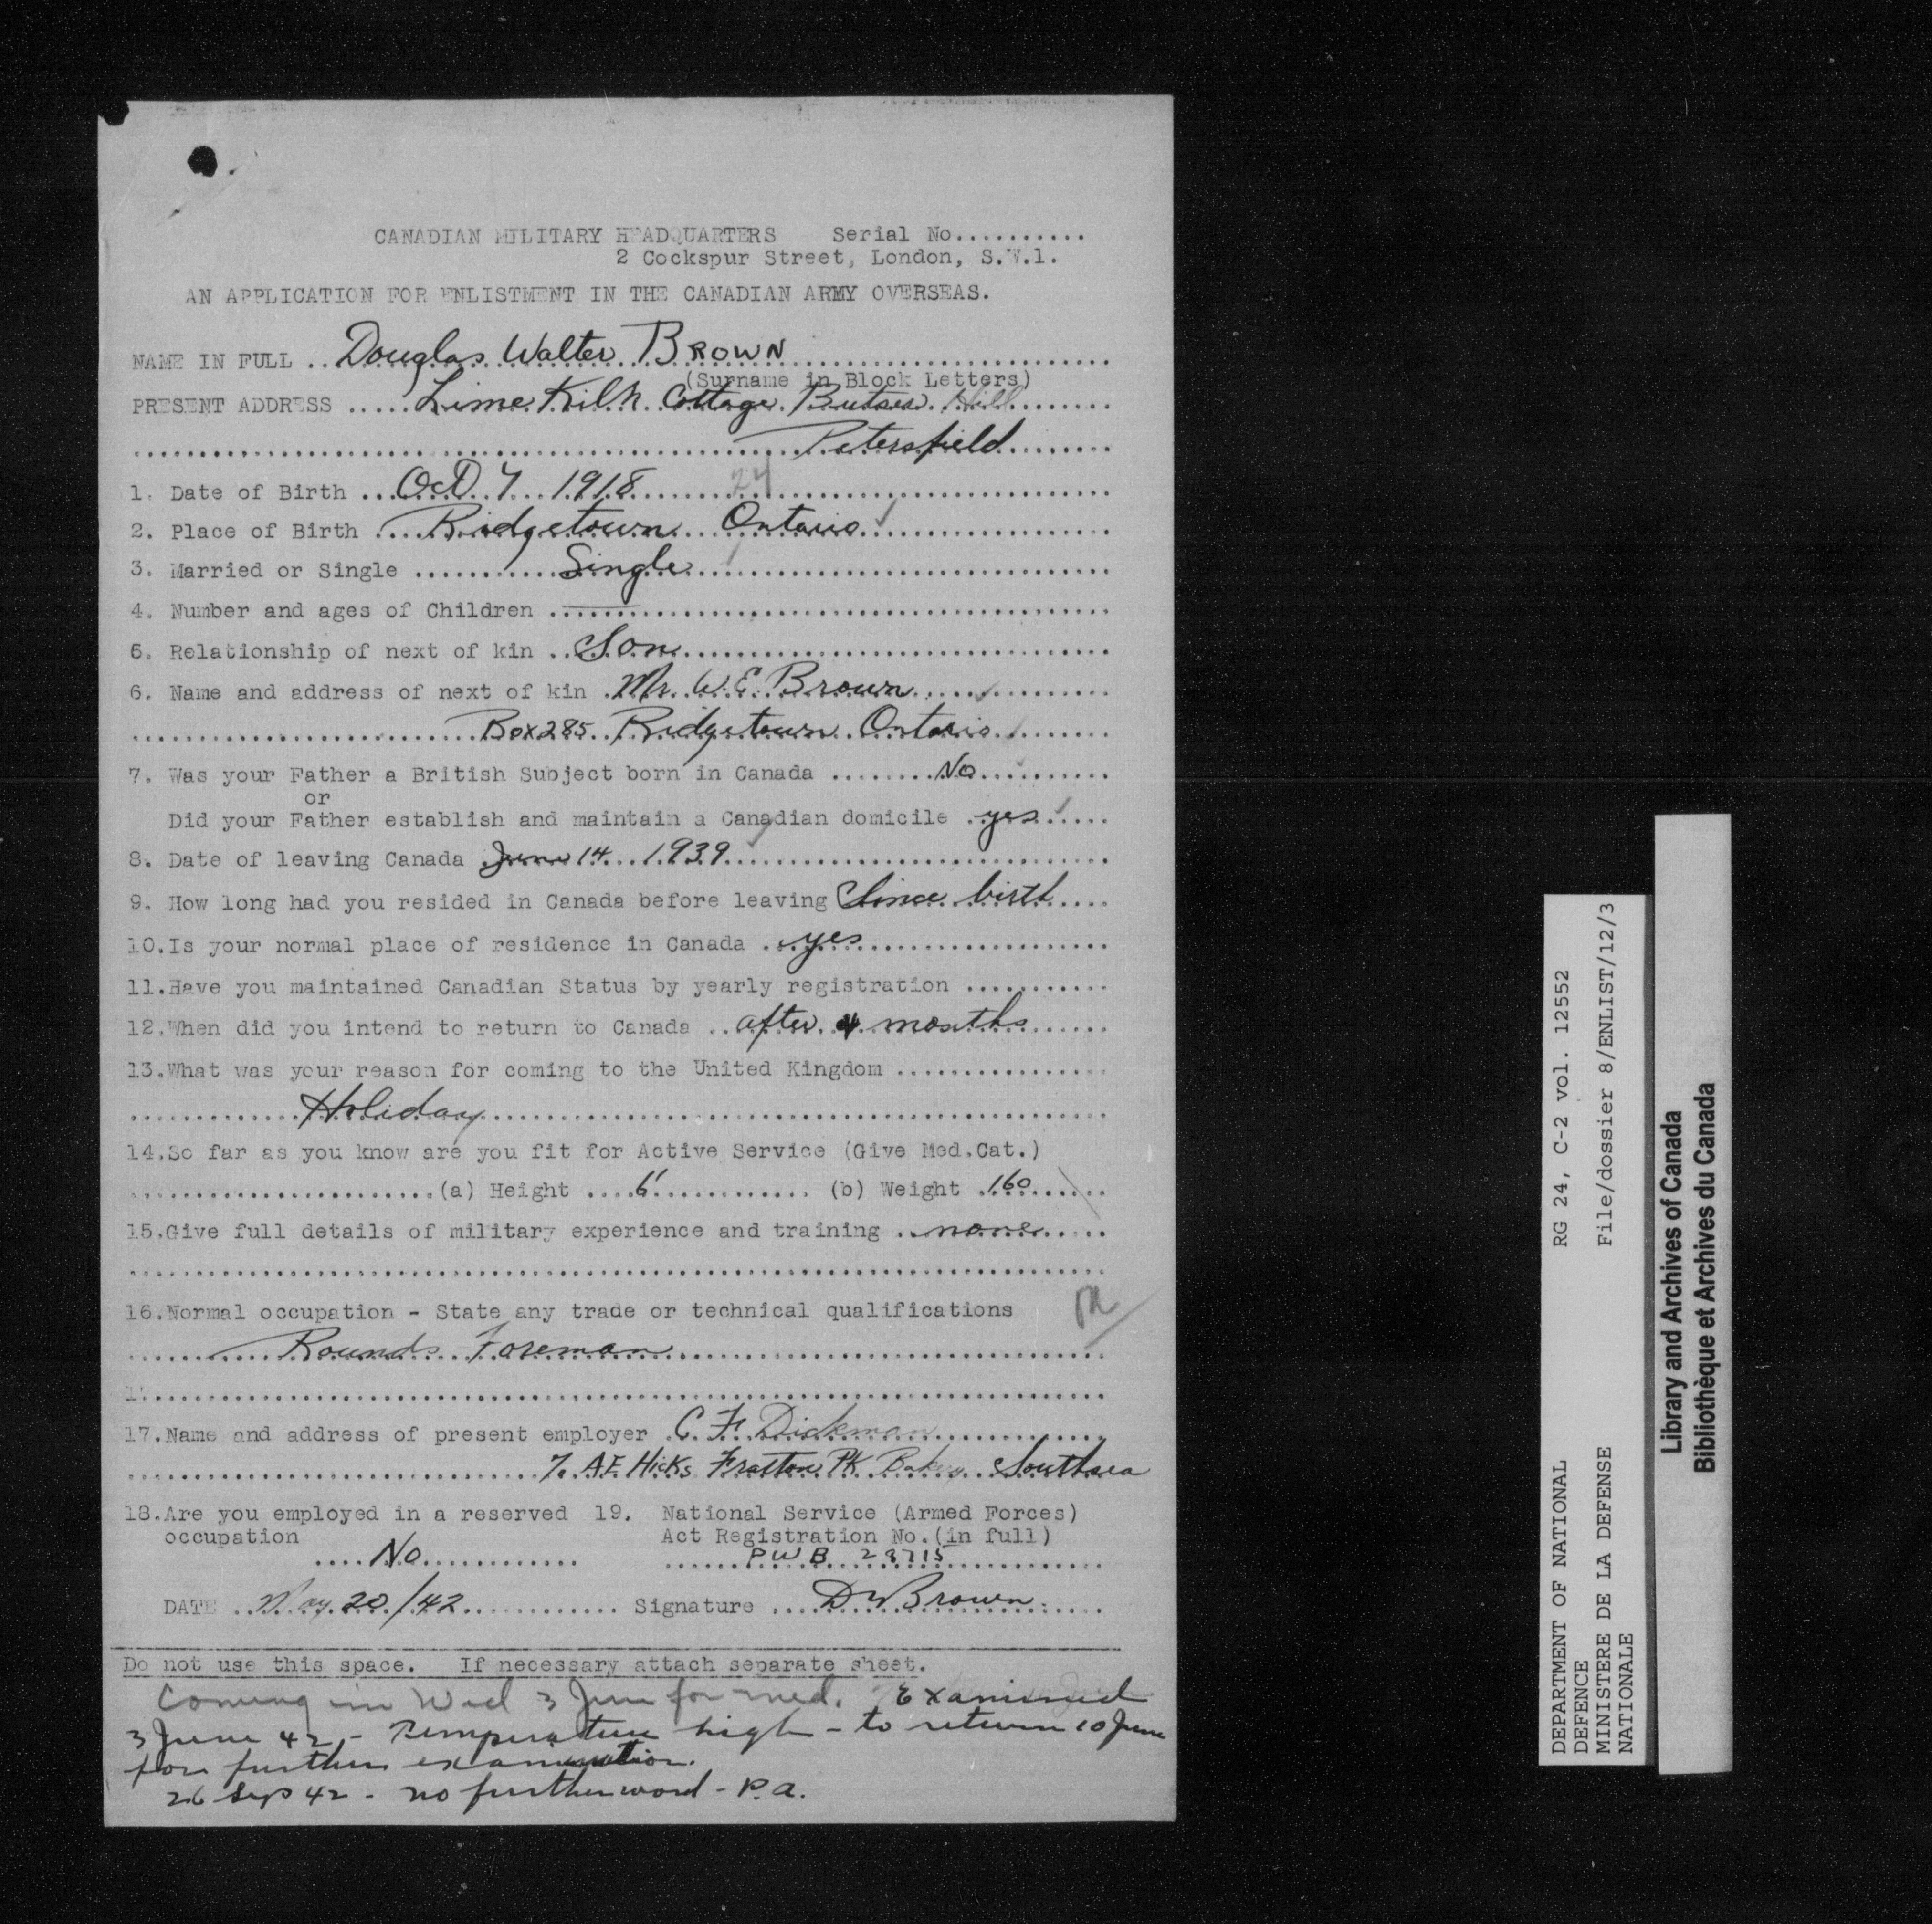 CANADIAN MILITARY HEADQUARTERS Serial No..........
2 Cockspur Street, London, S.W.1.
AN APPLICATION FOR ENLISTMENT IN THE CANADIAN ARMY OVERSEAS.
NAME IN FULL .. Douglas Walter BROWN
(Surname in Block Letters)
PRESENT ADDRESS ..... Lime Kiln Cottage Butser Hill
Petersfield
1. Date of Birth ... Oct 7 1918 24
2. Place of Birth .... Ridgetown Ontario
3. Married or Single .......... Single
4. Number and ages of Children ..........
5. Relationship of next of kin .. Son
6. Name and address of next of kin . Mr. W. E. Brown
Box 285 Ridgetown Ontario
7. Was your Father a British Subject born in Canada ........ No
or
Did your Father establish and maintain a Canadian domicile . yes
8. Date of leaving Canada June 14 1939
9. How long had you resided in Canada before leaving Since birth
10.Is your normal place of residence in Canada .. yes
11.Have you maintained Canadian Status by yearly registration ...........
12.When did you intend to return to Canada .. after 4 months
13.What was your reason for coming to the United Kingdom ................
Holiday
14.So far as you know are you fit for Active Service (Give Med.Cat.)
(a) Height .... 6' ............ (b) Weight . 160
15.Give full details of military experience and training .. none
16.Normal occupation - State any trade or technical qualifications
Rounds Foreman
17.Name and address of present employer . C. F. Dickman
A.E. Hicks Fratton PK Bakery Southsea
18.Are you employed in a reserved 19. National Service (Armed Forces)
occupation Act Registration No.(in full)
.... No ............ ...... P W B 28715
DATE .. May 20/42 ............ Signature .... D W Brown
Do not use this space. If necessary attach separate sheet.
Coming in Wed 3 June for med. Examined
3 June 42 - Temperature high - to return 10 June
for further examination.
26 Sep 42 - no further word - P.A.
DEPARTMENT OF NATIONAL DEFENCE
MINISTERE DE LA DEFENSE NATIONALE
RG 24, C-2 vol. 12552
File/dossier 8/ENLIST/12/3
Library and Archives of Canada
Bibliothèque et Archives du Canada